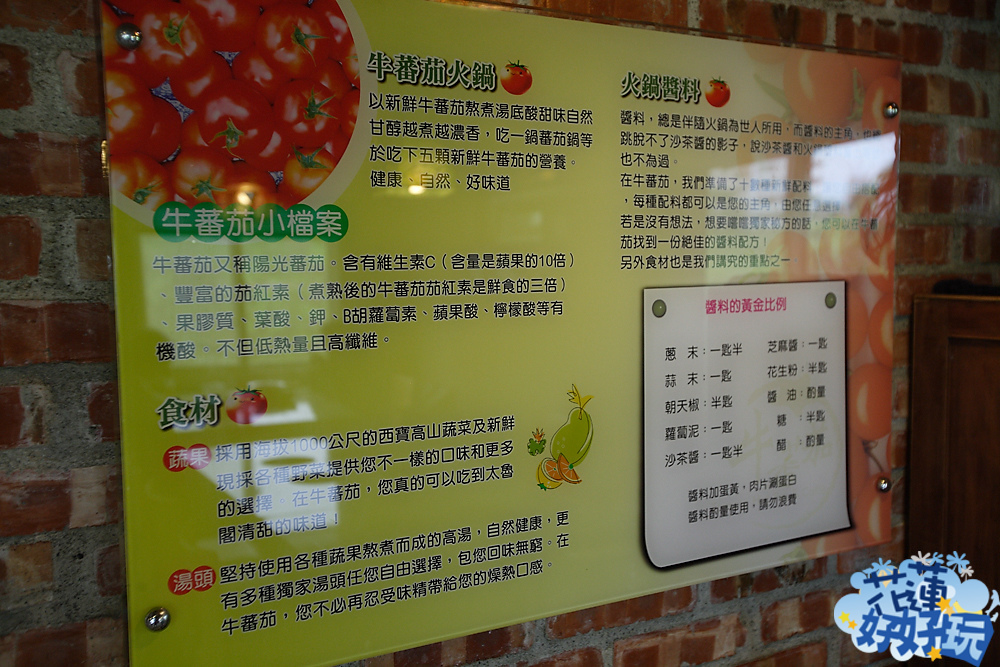 牛蕃茄火鍋
以新鮮牛蕃茄熬煮湯底酸甜味自然
甘醇越煮越濃香，吃一鍋蕃茄鍋等
於吃下五顆新鮮牛蕃茄的營養。
健康、自然、好味道
牛蕃茄小檔案
牛蕃茄又稱陽光蕃茄。含有維生素C（含量是蘋果的10倍）
、豐富的茄紅素（煮熟後的牛蕃茄茄紅素是鮮食的三倍）
、果膠質、葉酸、鉀、B胡蘿蔔素、蘋果酸、檸檬酸等有
機酸。不但低熱量且高纖維。
食材
蔬果
採用海拔1000公尺的西寶高山蔬菜及新鮮
現採各種野菜提供您不一樣的口味和更多
的選擇。在牛蕃茄，您真的可以吃到太魯
閣清甜的味道！
湯頭
堅持使用各種蔬果熬煮而成的高湯，自然健康，更
有多種獨家湯頭任您自由選擇，包您回味無窮。在
牛蕃茄，您不必再忍受味精帶給您的燥熱口感。
火鍋醬料
醬料，總是伴隨火鍋為世人所用，而醬料的主角，
跳脫不了沙茶醬的影子，說沙茶醬和火鍋
也不為過。
在牛蕃茄，我們準備了十數種新鮮配料
，每種配料都可以是您的主角，由您任意選擇
若是沒有想法，想要嚐嚐獨家秘方的話，您可以在牛蕃
茄找到一份絕佳的醬料配方！
另外食材也是我們講究的重點之一
醬料的黃金比例
蔥 末：一匙半 芝麻醬：一匙
蒜 末：一匙 花生粉：半匙
朝天椒：半匙 醬 油：酌量
蘿蔔泥：一匙 糖 ：半匙
沙茶醬：一匙半 醋 ：酌量
醬料加蛋黃，肉片涮蛋白
醬料酌量使用，請勿浪費
花蓮
好好玩